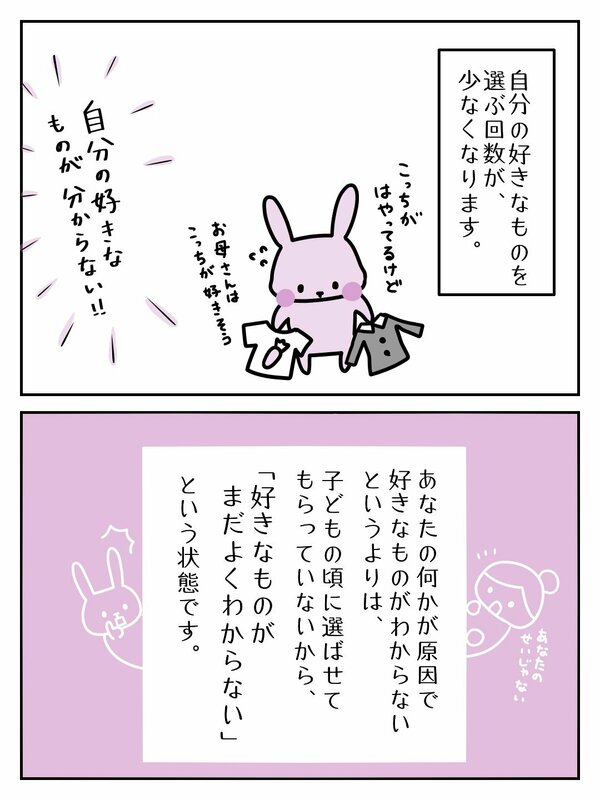 自分の好きなものを
選ぶ回数が、
少なくなります。
こっちが
はやってるけど
お母さんは
こっちが好きそう
自分の好きな
ものが分からない!!
あなたの何かが原因で
好きなものがわからない
というよりは、
子どもの頃に選ばせて
もらっていないから、
「好きなものが
まだよくわからない」
という状態です。
あなたの
せいじゃない